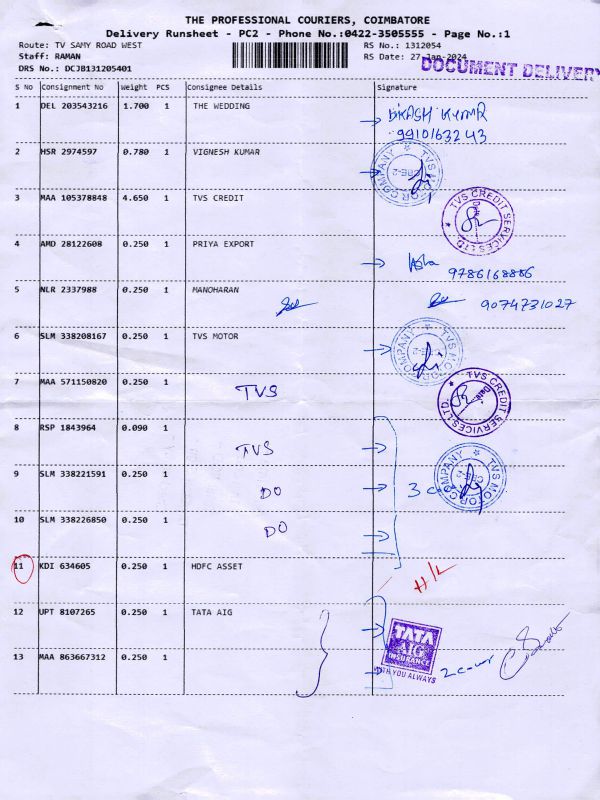 THE PROFESSIONAL COURIERS, COIMBATORE
Delivery Runsheet - PC2 - Phone No.:0422-3505555 - Page No.:1
Route: TV SAMY ROAD WEST RS No.: 1312054
Staff: RAMAN RS Date: 27-Jan-2024
DOCUMENT DELIVERY
DRS No.: DCJB131205401
S No Consignment No Weight PCS Consignee Details Signature
1 DEL 203543216 1.700 1 THE WEDDING BIKASH KUMAR
9910163243
2 HSR 2974597 0.780 1 VIGNESH KUMAR TVS MOTOR COMPANY CBE-2
3 MAA 105378848 4.650 1 TVS CREDIT TVS CREDIT SERVICES LTD.
4 AMD 28122608 0.250 1 PRIYA EXPORT
9786168886
5 NLR 2337988 0.250 1 MANOHARAN 9074731027
6 SLM 338208167 0.250 1 TVS MOTOR TVS MOTOR COMPANY CBE-2
7 MAA 571150820 0.250 1 TVS TVS CREDIT SERVICES LTD.
8 RSP 1843964 0.090 1 TVS
9 SLM 338221591 0.250 1 DO 3 TVS MOTOR COMPANY CBE-2
10 SLM 338226850 0.250 1 DO
11 KDI 634605 0.250 1 HDFC ASSET H/L
12 UPT 8107265 0.250 1 TATA AIG TATA
AIG
INSURANCE
13 MAA 863667312 0.250 1 WITH YOU ALWAYS